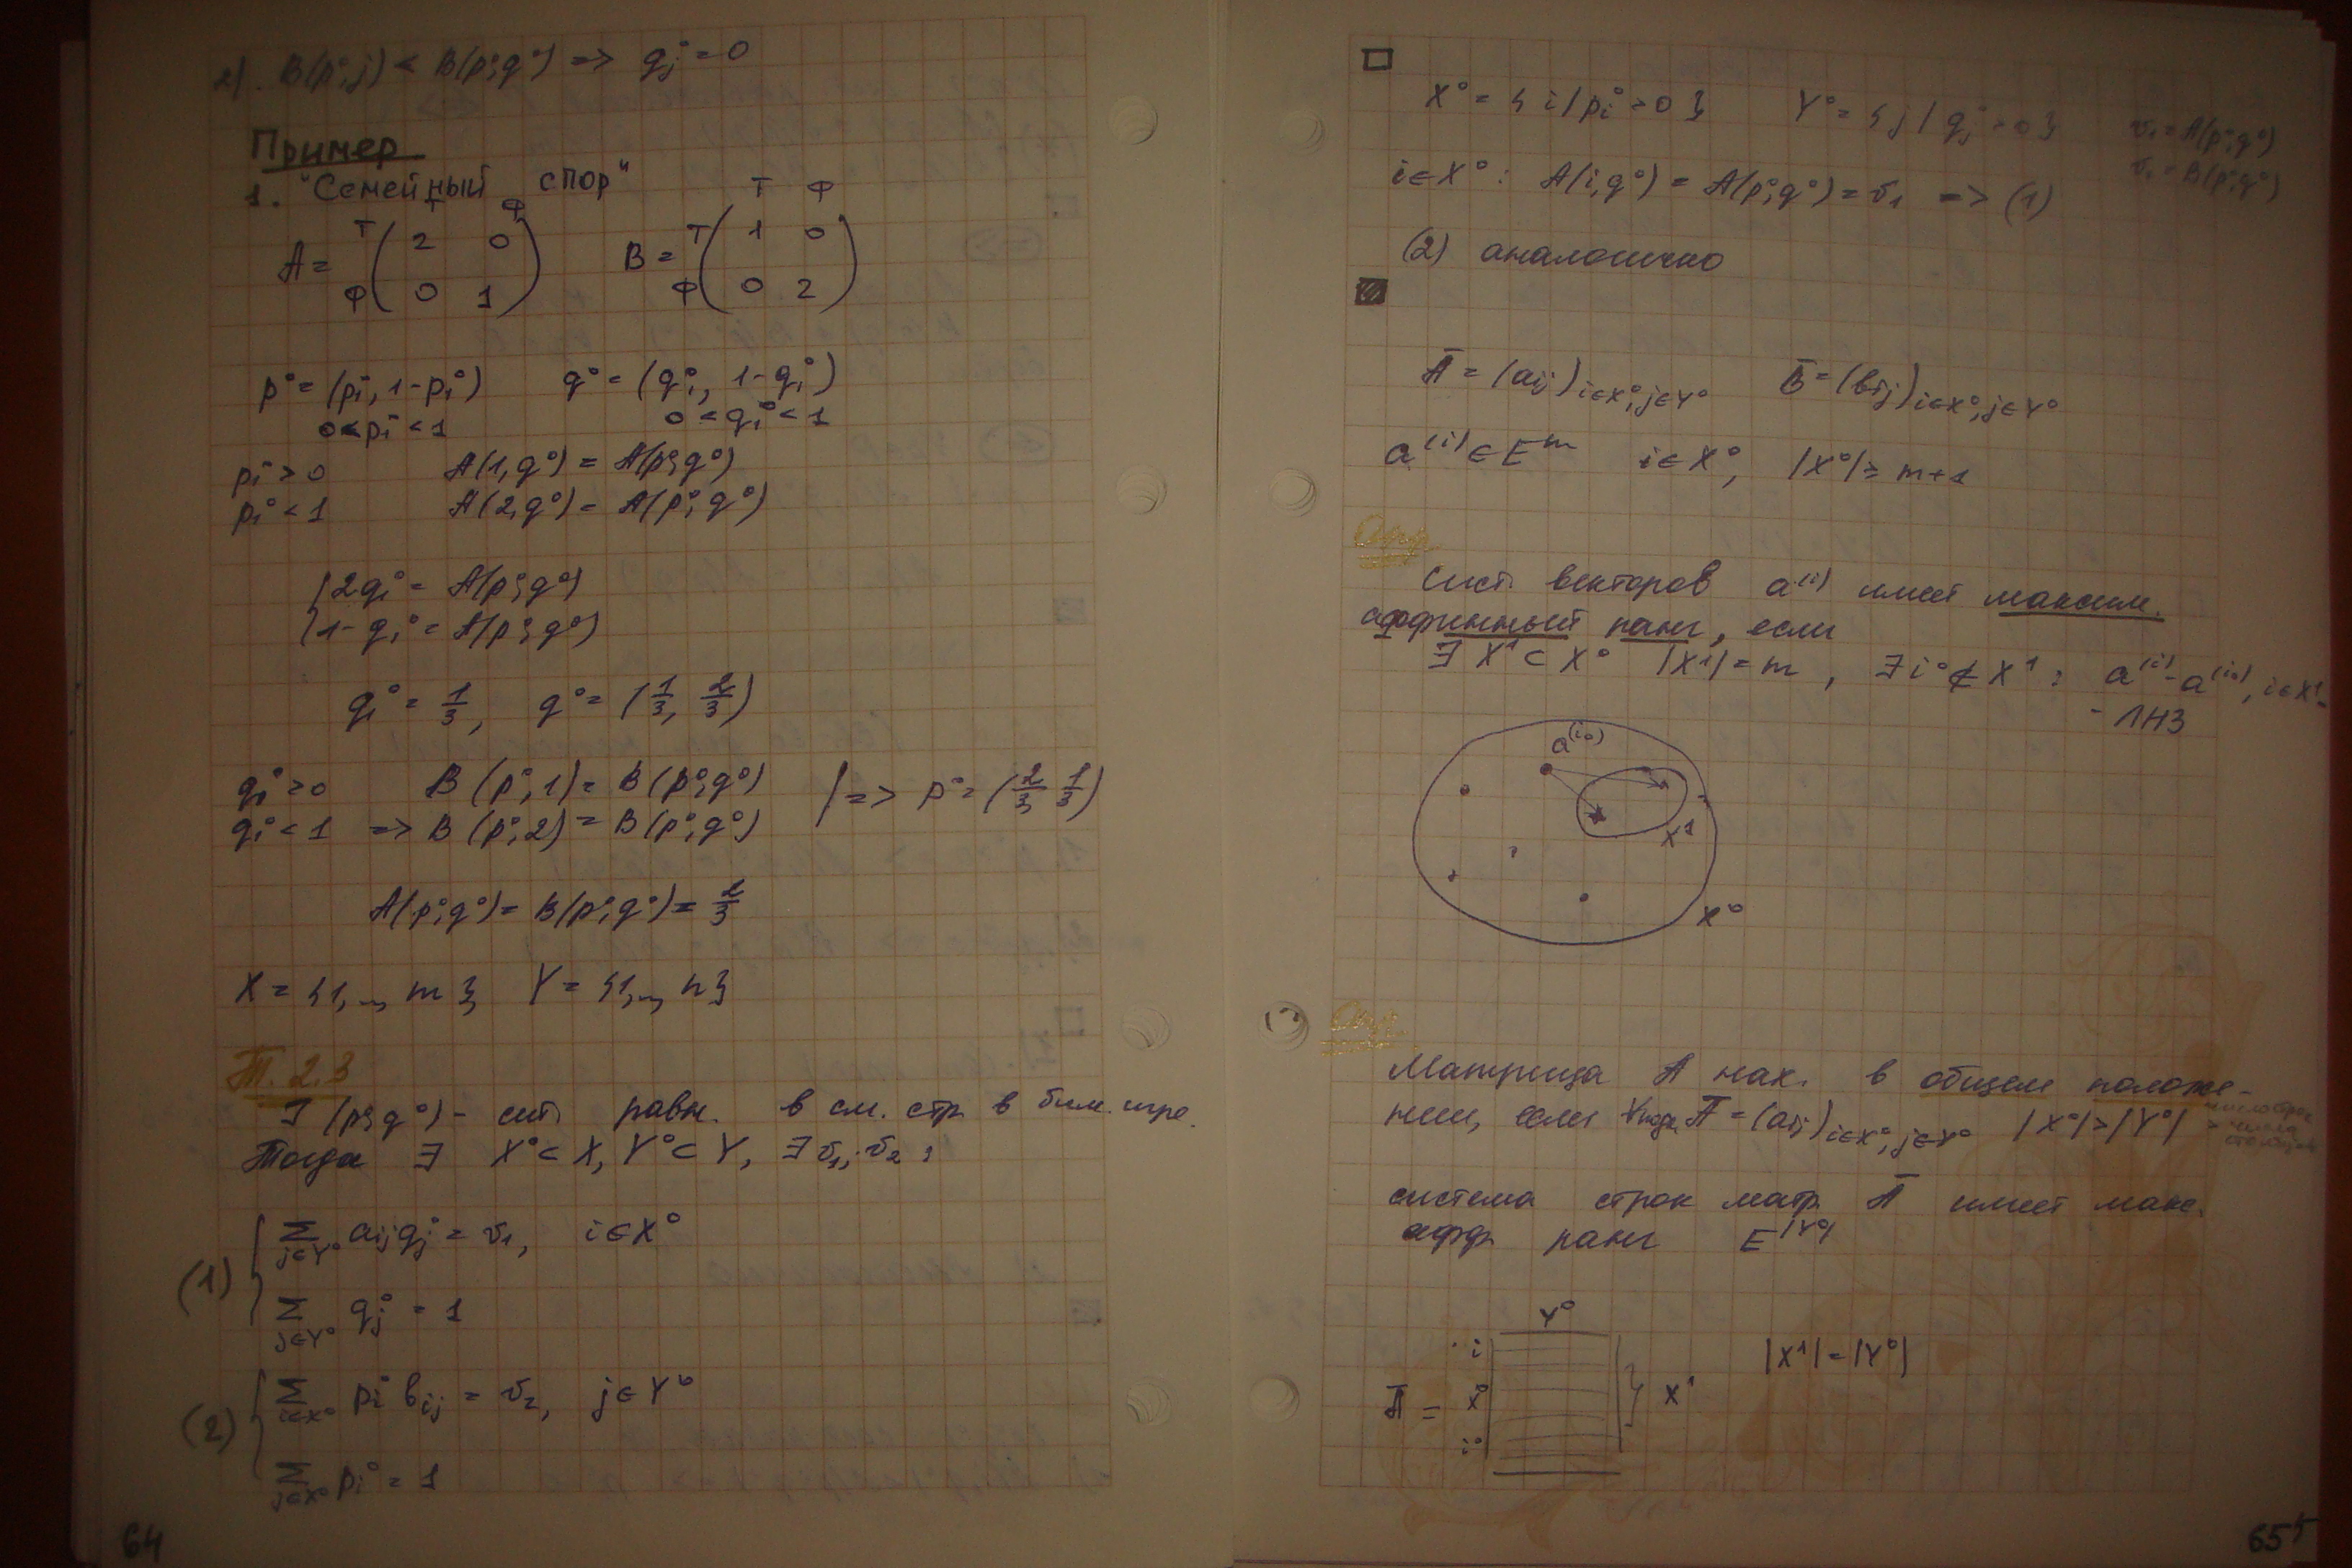 2). B(p°,j) < B(p°,q°) => qj° = 0
Пример
1. "Семейный спор"
Т Ф Т Ф
A = Т ( 2 0 ) B = Т ( 1 0 )
Ф ( 0 1 ) Ф ( 0 2 )
p° = (p₁°, 1-p₁°) q° = (q₁°, 1-q₁°)
0 < p₁° < 1 0 < q₁° < 1
p₁° > 0 A(1,q°) = A(p°,q°)
p₁° < 1 A(2,q°) = A(p°,q°)
{ 2q₁° = A(p°,q°)
{ 1-q₁° = A(p°,q°)
q₁° = 1/3, q° = (1/3, 2/3)
q₁° > 0 B(p°,1) = B(p°,q°) | => p° = (2/3, 1/3)
q₁° < 1 => B(p°,2) = B(p°,q°)
A(p°,q°) = B(p°,q°) = 2/3
X = {1,..., m}, Y = {1,..., n}
Т. 2.3
] (p°,q°) - сит. равн. в см. стр. в бим. игре.
Тогда ∃ X° ⊂ X, Y° ⊂ Y, ∃ v₁, v₂ :
(1) { Σ_{j∈Y°} aij qj° = v₁, i ∈ X°
Σ_{j∈Y°} qj° = 1
(2) { Σ_{i∈X°} pi° вij = v₂, j ∈ Y°
Σ_{j∈X°} pi° = 1
64
□
X° = { i | pi° > 0 } Y° = { j | qj° > 0 } v₁ = A(p°,q°)
v₂ = B(p°,q°)
i ∈ X° : A(i,q°) = A(p°,q°) = v₁ => (1)
(2) аналогично
■
Ā = (aij) i∈X°, j∈Y° B̄ = (вij) i∈X°, j∈Y°
a⁽ⁱ⁾ ∈ Eᵐ i ∈ X°, |X°| ≥ m+1
Опр.
Сист. векторов a⁽ⁱ⁾ имеет максим.
аффинный ранг, если
∃ X¹ ⊂ X° |X¹| = m , ∃ i° ∉ X¹ : a⁽ⁱ⁾ - a⁽ⁱ⁰⁾, i ∈ X¹ -
- ЛНЗ
a⁽ⁱ⁰⁾
X¹
X°
Опр.
Матрица A нах. в общем положе-
нии, если ∀ подм. Ā = (aij) i∈X°, j∈Y° |X°| > |Y°| число строк > числа столбцов
система строк матр. Ā имеет макс.
афф. ранг E^|Y°|
Y°
i
Ā = X° } X¹ |X¹| = |Y°|
i°
65